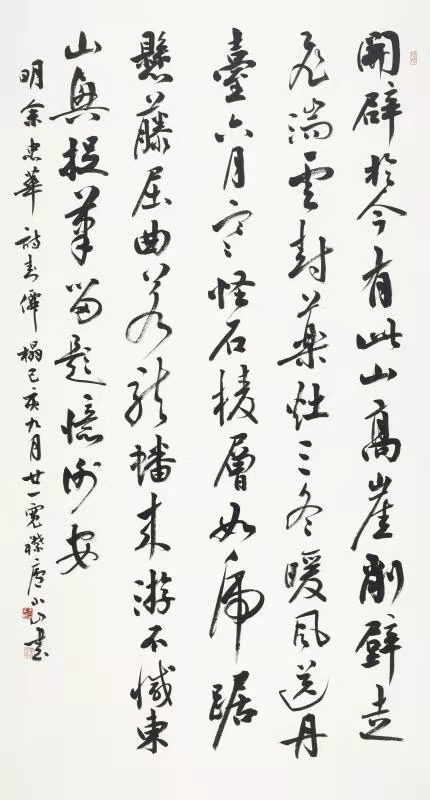 開辟於今有此山高崖削壁走
飛湍雲封藥灶三冬暖風送丹
臺六月寒怪石棱層如虎踞
懸藤屈曲若龍蟠來游不減東
山興捉筆留題憶謝安
明余忠華詩書僊榻己亥九月廿一寬襟廬小山書